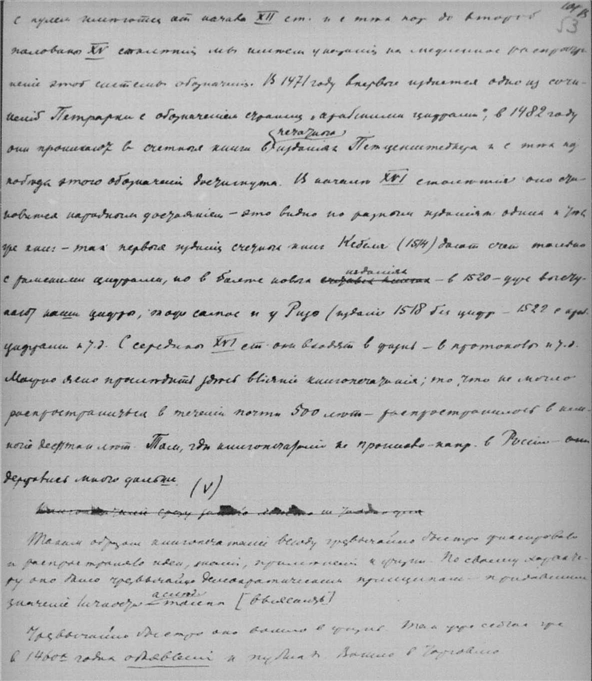 53
с нулем кончаются от начала XII ст. и с тех пор до второй
половины XV столетия мы имеем указания на медленное распространение
этой системы обозначения. В 1471 году впервые издается одно из сочинений
Петрарки с обозначением страниц "арабскими цифрами"; в 1482 году
печатного
они проникают в счетные книги в издания Петценштейнера и с тех пор
победа этого обозначения достигнута. В начале XVI столетия оно становится
народным достоянием – это видно по разным изданиям одних и тех
же книг – так первые издания счетных книг Кебеля (1514) дают счет только
изданиях
с римскими цифрами, но в более новых – в 1520 – уже выступают
наши цифры, то же самое и у Ризе (издание 1518 без цифр – 1522 с араб.
цифрами и т.д. С середины XVI ст. они входят в жизнь – в протоколы и т.д.
Можно ясно проследить здесь влияние книгопечатания; то, что не могло
распространиться в течение почти 500 лет – распространилось в немного
десятков лет. Там, где книгопечатание не проникло – напр. в России – они
держались много дальше.
(V)
Таким образом книгопечатание всюду чрезвычайно быстро фиксировало
и распространяло идеи, знания, приложения к жизни. По своему характеру
оно было чрезвычайно демократическим принципом – придавшим
значение [выяснить]
Чрезвычайно быстро оно вошло в жизнь. Так уже
в 1460х годах объявления и Вошло в торговлю